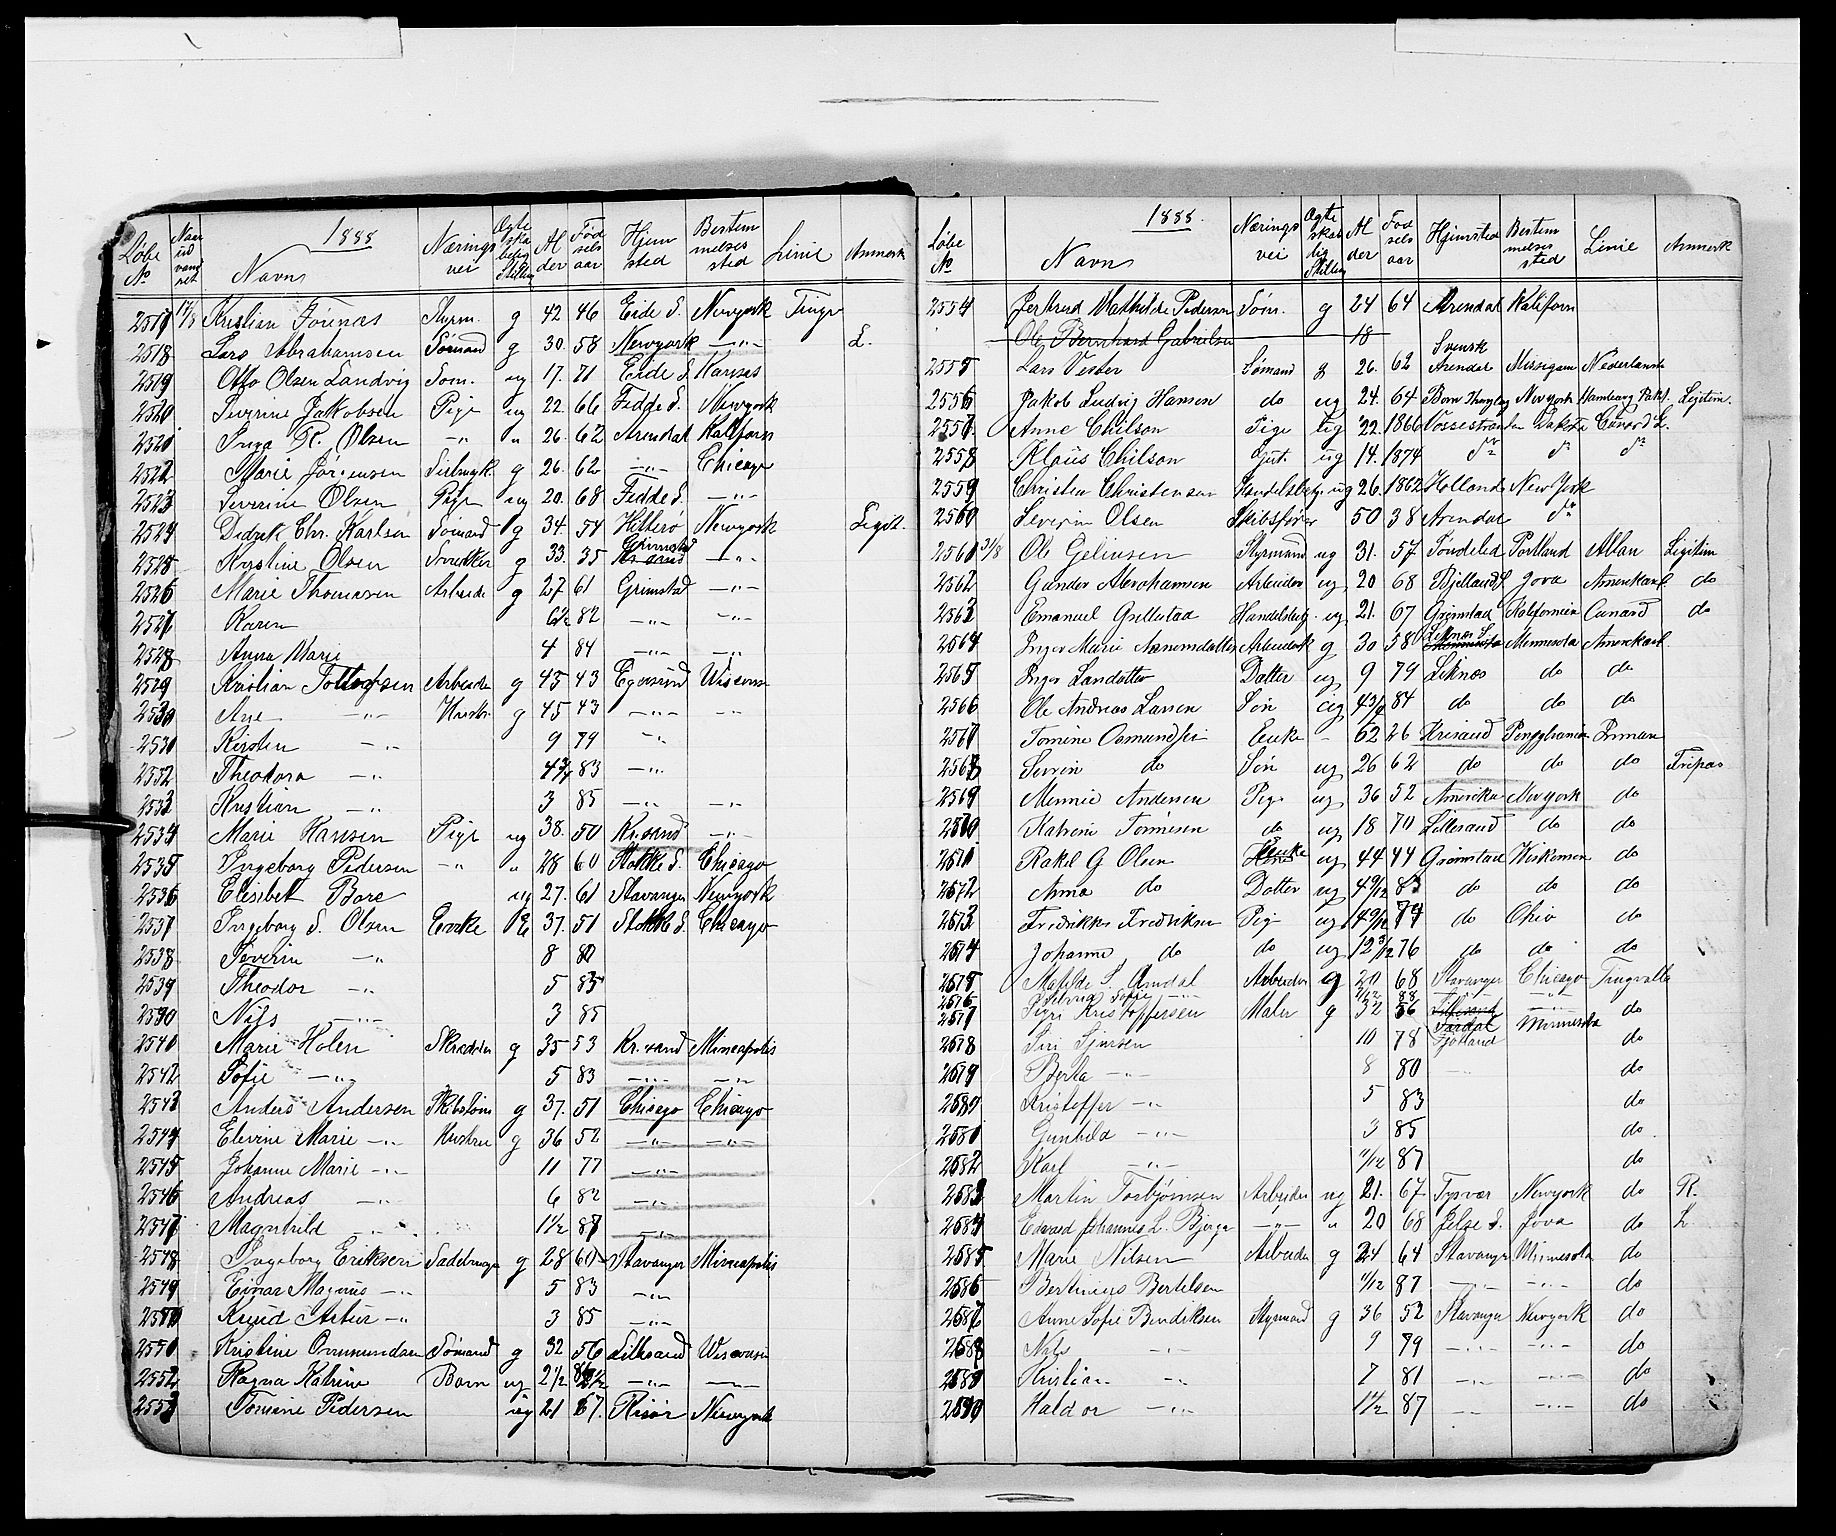 1888
Løbe No Naar udvandret Navn Næringsvei Ægteskabelig Stilling Alder Fødselsaar Hjemsted Bestemmelsessted Linie Anmerk
2517 17/8 Kristian Tönnes Styrm. g 42 46 Eide S. Newyork Tingv
2518 Lars Abrahamsen Sømand g 30. 58 Newyork -"- L.
2519 Otto Olsen Landvig Søm. ug 17. 71 Eide S Kansas
2520 Severine Jakobsen Pige ug 22. 66 Fedde S. Newyork
2521 Inga R. Olsen -"- " 26. 62 Arendal Kaliforn
2522 Marie Jörgensen g 26. 62 -"- Chicago
2523 Severine Olsen Pige ug 20. 68 Fedde S. -"-
2524 Didrik Chr. Karlsen Sømand g 34. 54 Hitterø Newyork Legit.
2525 Kristine Olsen Snedker g 33. 35 Grimstad -"-
2526 Marie Thomasen Arbeider g 27 61 Grimstad -"-
2527 Karen 6½ 82 -"- -"-
2528 Anna Marie 4 84 -"- -"-
2529 Kristian Tollefsen Arbeider g 45 43 Egersund Wisconsin
2530 Ane -"- Hustr. g 45 43 -"- -"-
2531 Kirsten -"- 9 79 -"-
2532 Theodora -"- 4¾ 83 -"-
2533 Kristian -"- 3 85 -"- -"-
2534 Marie Hansen Pige ug 38. 50 Kr.sand -"-
2535 Ingeborg Pedersen -"- " 28 60 Stokke S. Chicago
2536 Elisabet Bore ug 27. 61 Stavanger Newyork
2537 Ingeborg S. Olsen Enke E 37. 51 Stokke S Chicago
2538 Severin -"- 8 80
2539 Theodor -"- 5 83
2540 Nils -"- 3 85
2541 Marie Holen Skrædder g 35 53 Kr.sand Mineapolis
2542 Sofie -"- 5 83 -"- -"-
2543 Anders Andersen Skibstøm g 37. 51 Chicago Chicago
2544 Elevine Marie -"- Hustru g 36 52 -"- -"-
2545 Johanne Marie -"- 11 77 -"-
2546 Andreas -"- 6 82 -"-
2547 Magnhild -"- 1½ 87 -"-
2548 Ingeborg Eriksen Sadelmager g 28 60 Stavanger Mineapolis
2549 Einar Magnus -"- 5 83 -"-
2550 Knud Artur -"- 3 85 -"-
2551 Kristine Ommundsen Sømand g 32 56 Lillesand Wisconsin
2552 Ragna Katrine Barn ug 2½ -"- -"-
2553 Tomine Pedersen ug 21 67. Risør Newyork
1888.
Løbe No Navn Næringsvei Ægteskabelig Stilling Alder Fødselsaar Hjemsted Bestemmelsessted Linie Anmerk
2554 Jertrud Mathilde Pedersen Søm. g 24 64 Arendal Kaliforn
Ole Bernhard Gabrielsen 18
2555 Lars Vester Sømand g 26. 62 Svensk Arendal Missigan Nederlansk
2556 Jakob Ludvig Hansen do ug 24. 64 Newyork Hamburg Pakt. Legitim.
2557. Anne Chilson Pige ug 22. 1866 Vossestranden Dakota Cunard L.
2558 Klaus Chilson Gut. ug 14. 1874 do do do
2559 Christen Christensen Handelsbetj. ug 26. 1862 Holland New York
2560 Severin Olsen Skibsfører 50 38 Arendal do
2561 31/8 Ole Gelinsen Styrmand ug 31. 57 Söndeled Portland Allan Legitim
2562 Gunder Abrahamsen Arbeider ug 20 68 Bjelland S Jova Amerikansk do
2563 Emanuel Grillstad Handelsbetj. ug 21. 67 Grimstad Kalifornien Cunard do
2564 Inger Marie Asmundsdatter Arbeidsk g 30 58 Leknes S. Minnesota Amerikansk.
2565 Inger Larsdatter Datter ug 9 79 Leknes do do
2566 Ole Andreas Larsen Søn ug 4 3/4 84 do do do
2567 Tomine Osmundsen Enke - 62 26 Krisand Pensylvanien Inman
2568 Severin do Søn ug 26 62 do do do Fripas
2569 Minnie Andersen Pige ug 36 52 Amerika Newyork do
2570 Katrine Tönnesen do ug 18 70 Lillesand do do
2571 Rakel G Olsen Enke ug 44 44 Grimstad Wiskonsin do
2572 Anna do Datter ug 4 9/12 83 do do do
2573 Fredrikke Fredriksen Pige ug 14 9/12 74 do Ohio do
2574 Johanne do do ug 12 3/12 76 do do do
2575 Matilde S. Omdal Arbeider g 20 68 Stavanger Chicago Tingvalla
2576 Sofie -"- 88 -"- -"-
2577 Kristoffersen Maler g 32 56 do
2578 Siri Sjursen 10 78 Fjotland Minnesota do
2579 Berta -"- 8 80 do
2580 Kristoffer -"- 5 83 do
2581 Gunhild -"- 3 85 do
2582 Karl -"- 11/12 87 do
2583 Martin Torbjørnsen Arbeider ug 21. 67 Tysvær Newyork do R.
2584 Edvard Johannes L. Bjerga -"- " 20 68 Jelse S. Jova do L
2585 Marie Nilsen Arbeider g 24 64 Stavanger Minnesota do
2586 Bertinius Bertelsen 11/12 87 -"- -"- do
2587 Anne Sofie Bendiksen Styrmand g 36 52 Stavanger Newyork do
2588 Nils -"- 9 79 -"- -"- do
2589 Kristian -"- 7 81 -"- -"- do
2590 Haldor -"- 1½ 87 -"- -"- do